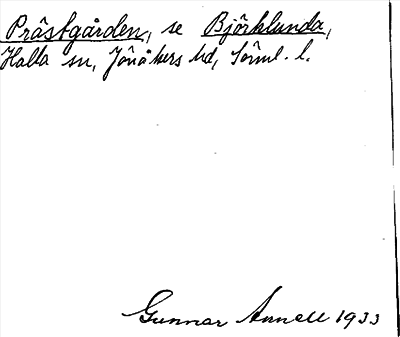 Prästgården, se Björklunda,
Halla sn, Jönåkers hd, Söml. l.
Gunnar Annell 1933